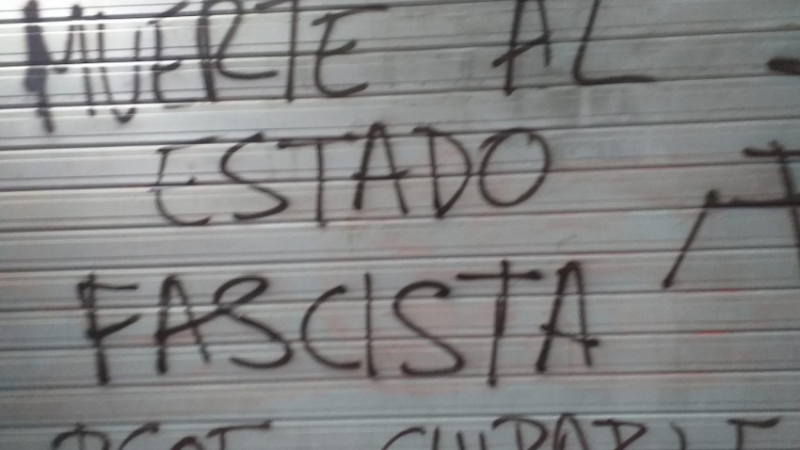 MUERTE AL
ESTADO
FASCISTA